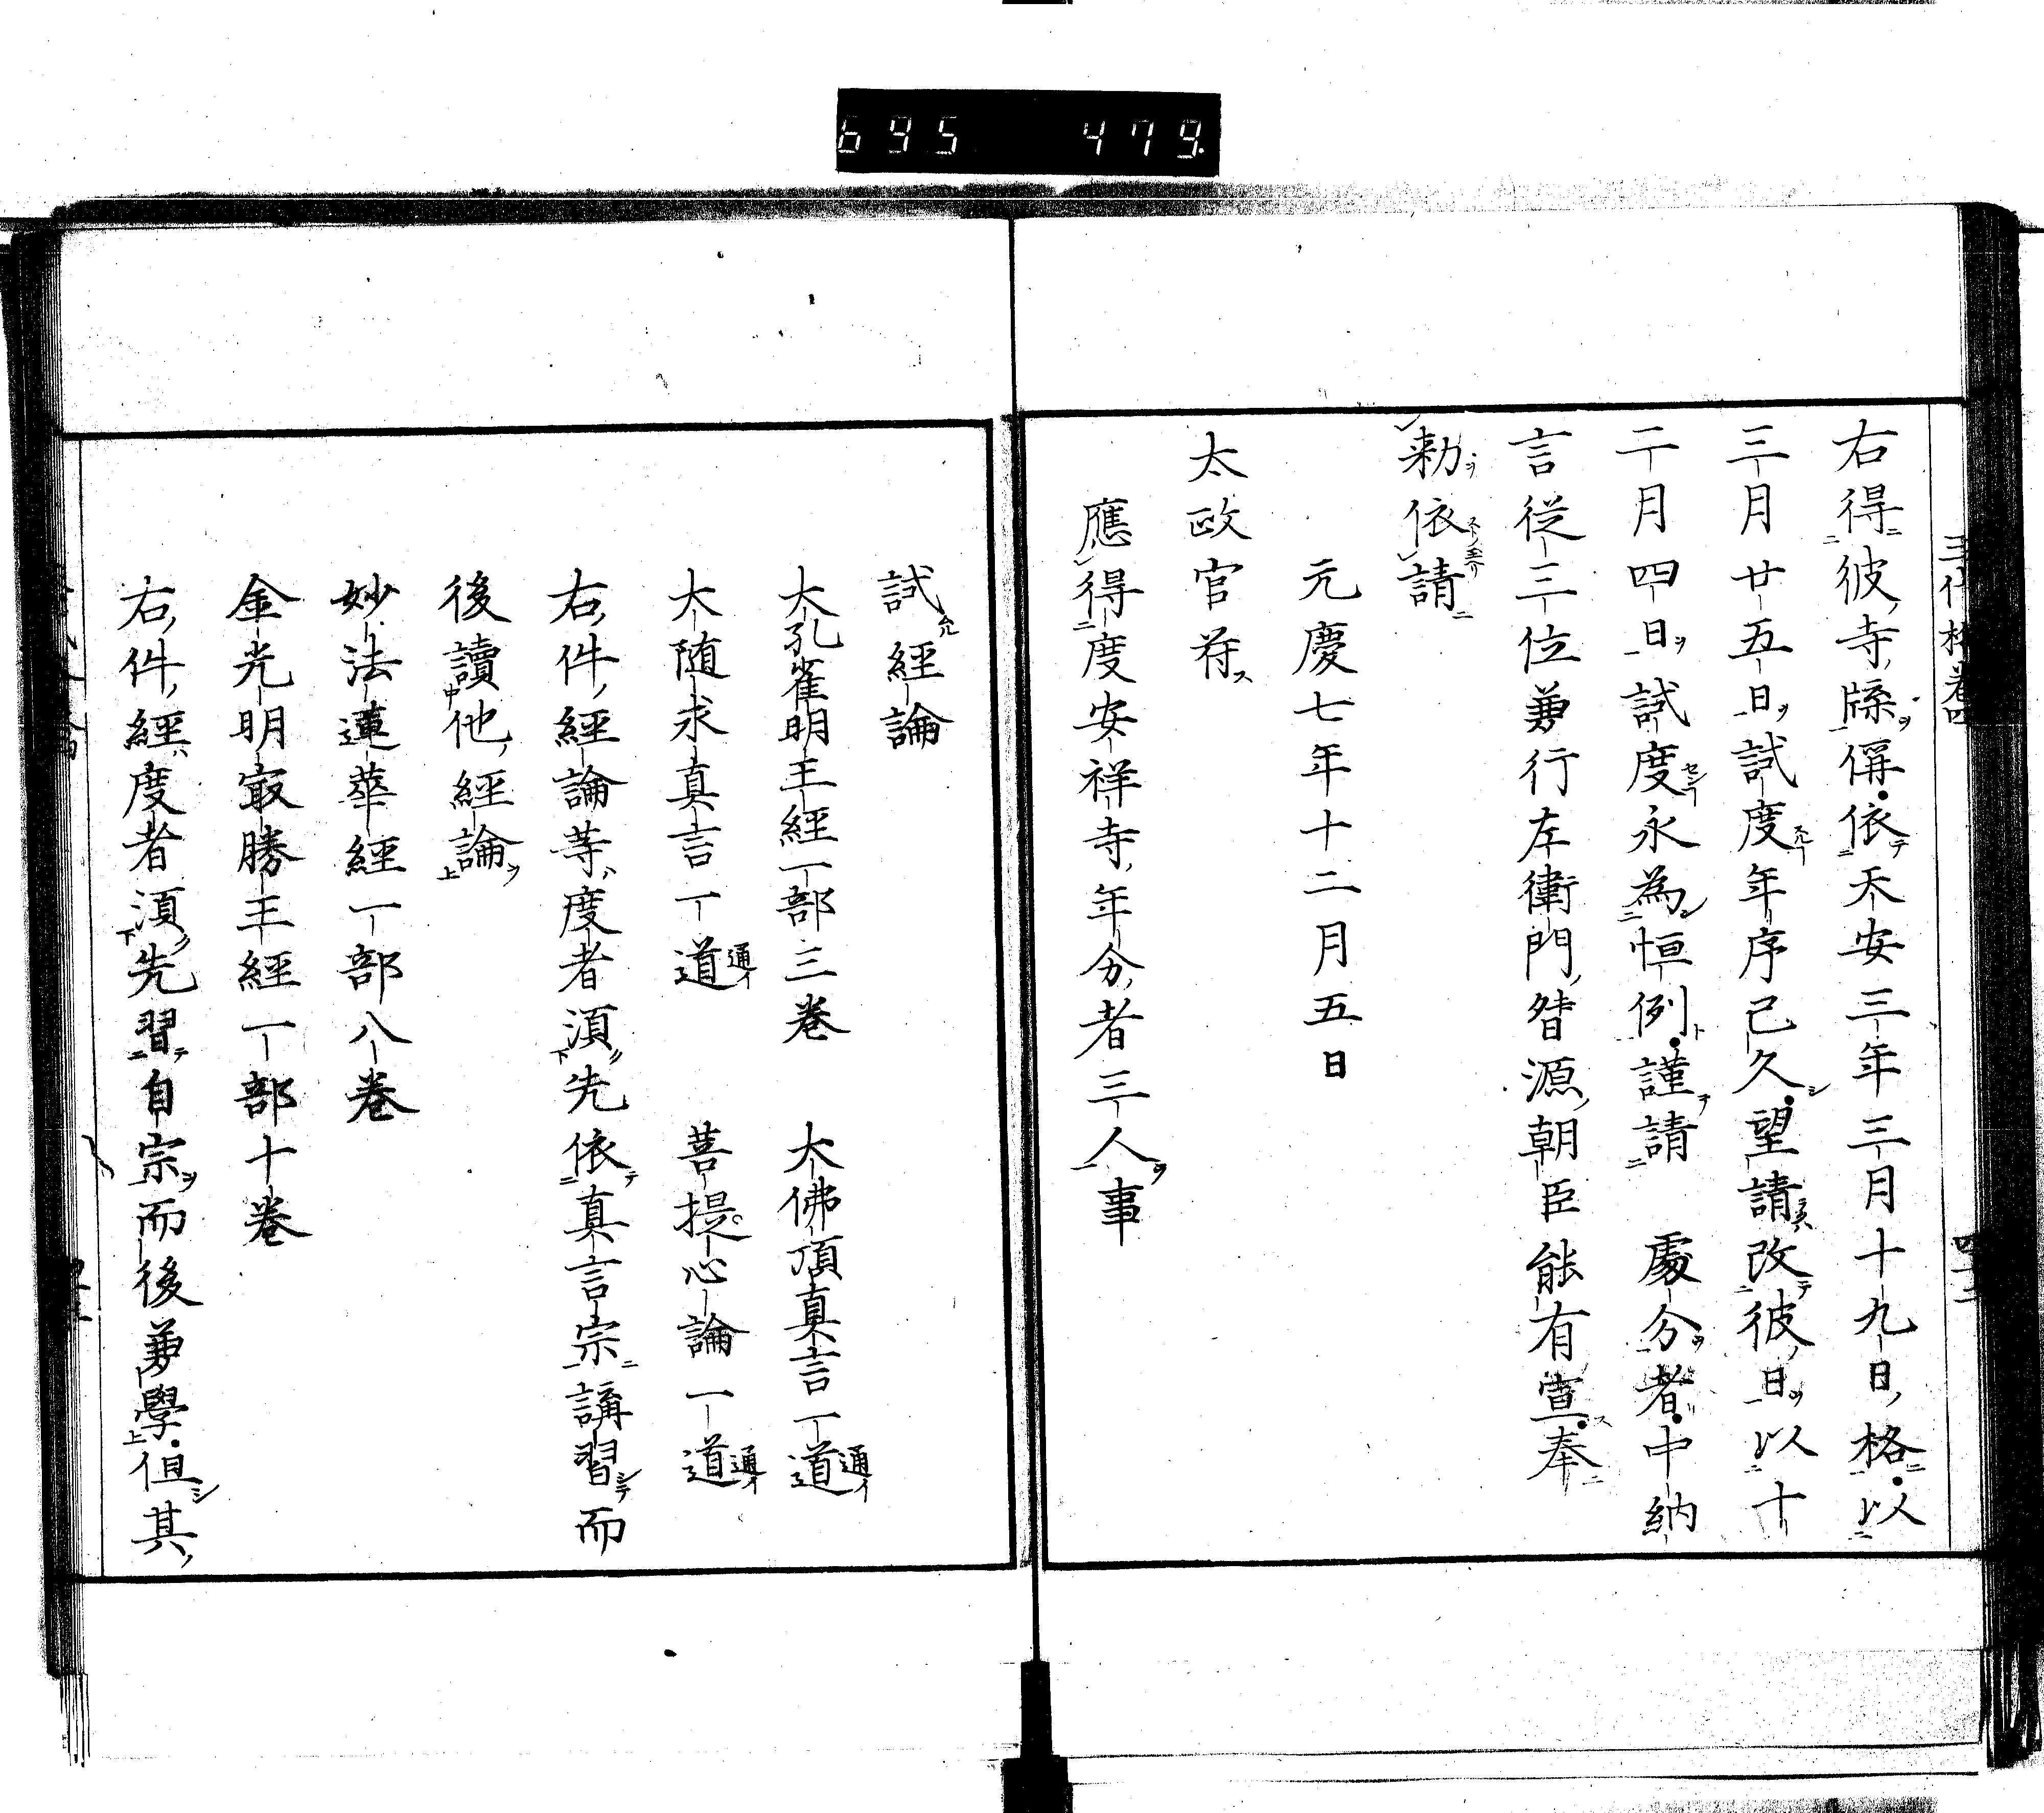 695 479
三代格卷四
右得彼寺牒偁依天安三年三月十九日格以
三月廿五日試度年序已久望請改彼日以十
二月四日試度永為恒例謹請 處分者中納
言從三位兼行左衛門督源朝臣能有宣奉
勅依請
元慶七年十二月五日
太政官符
應得度安祥寺年分者三人事
試經論
大孔雀明王經一部三卷 大佛頂真言一道通イ
大随求真言一道通イ 菩提心論一道通イ
右件經論等度者須先依真言宗講習而
後讀他經論
妙法蓮華經一部八卷
金光明最勝王經一部十卷
右件經度者須先習自宗而後兼學但其